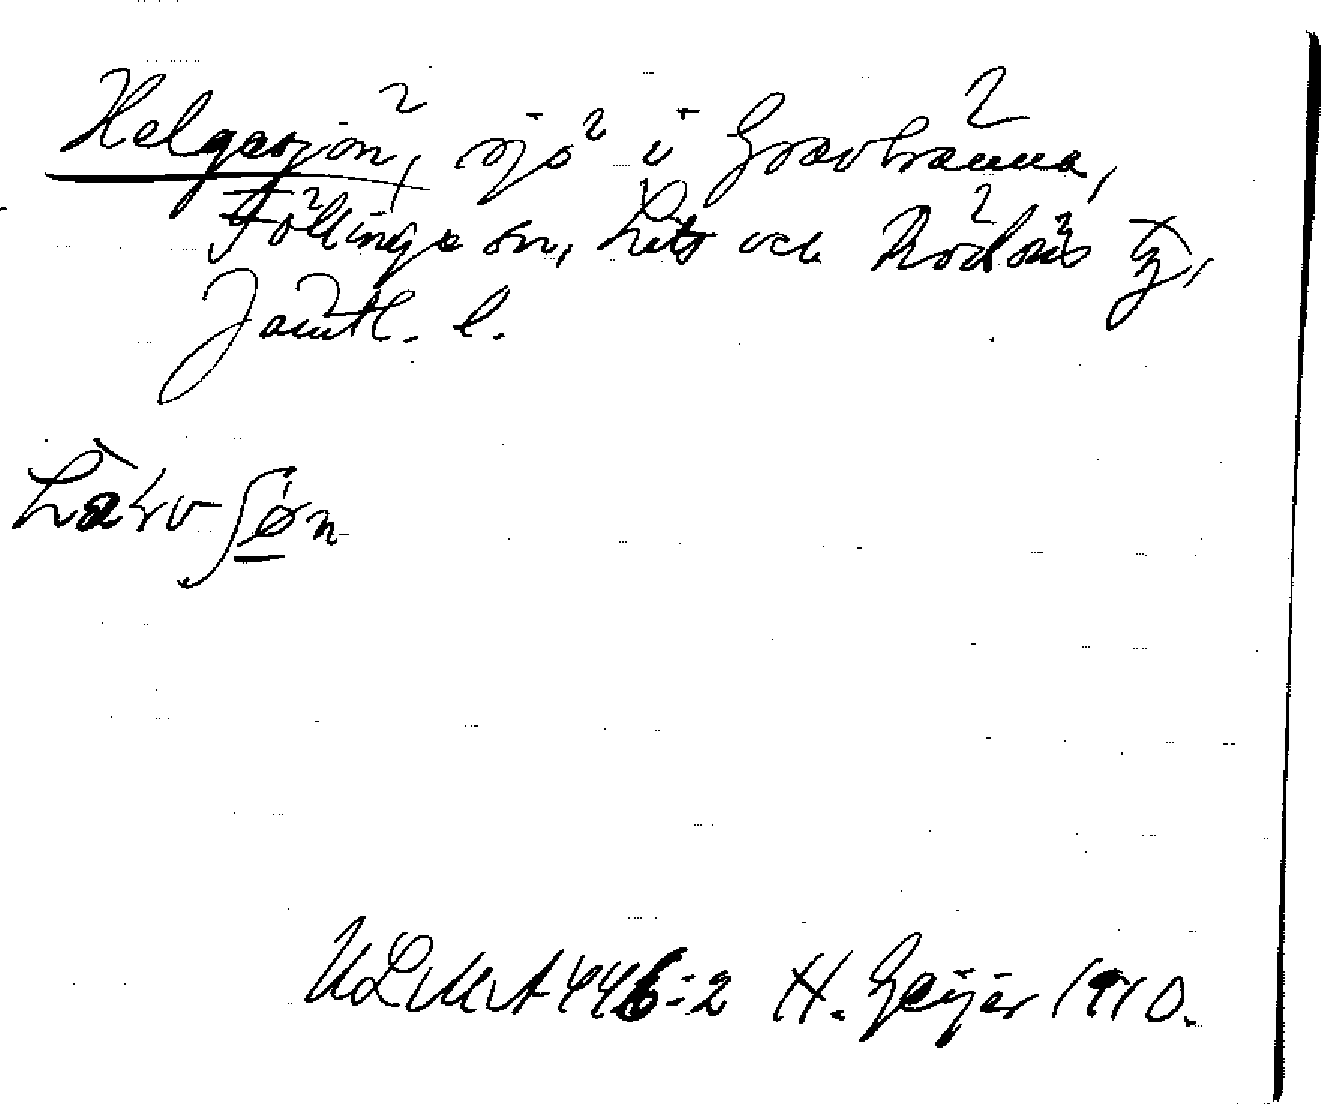 Helgasjön, sjö i Gravbränna,
Föllinge sn, Lits och Rödöns tg,
Jämtl. l.
ULMA 446:2 H. Geijer 1910.